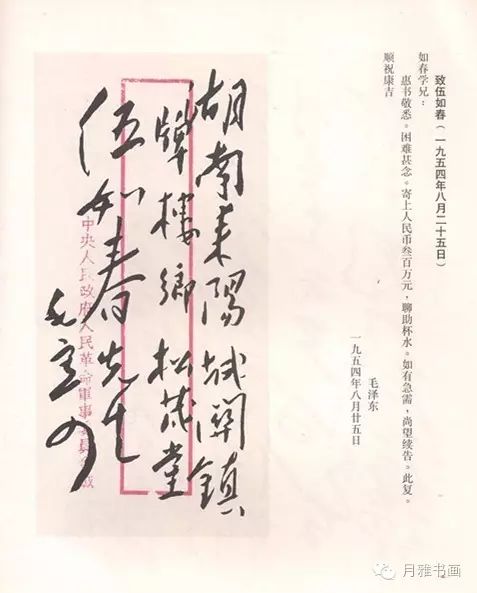 致伍如春（一九五四年八月二十五日）
如春学兄：
惠书敬悉。困难甚念。寄上人民币叁百万元，聊助杯水。如有急需，尚望续告。此复。
顺祝康吉
毛泽东
一九五四年八月廿五日
湖南耒陽城關鎮
牌樓鄉松茂堂
伍如春先生
中央人民政府人民革命軍事委員會緘
毛
月雅书画